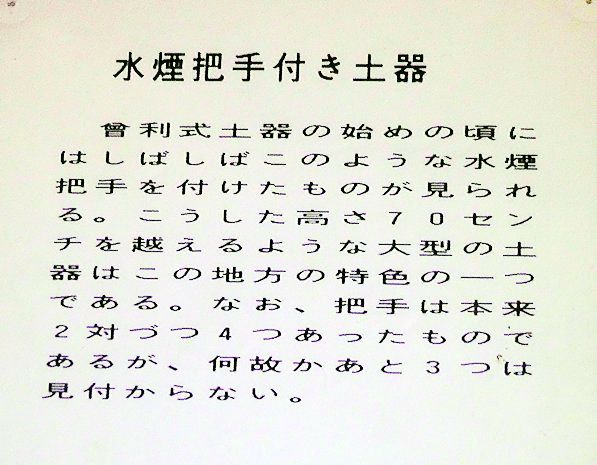 水煙把手付き土器
曾利式土器の始めの頃に
はしばしばこのような水煙
把手を付けたものが見られ
る。こうした高さ70セン
チを越えるような大型の土
器はこの地方の特色の一つ
である。なお、把手は本来
2対づつ4つあったもので
あるが、何故かあと3つは
見付からない。